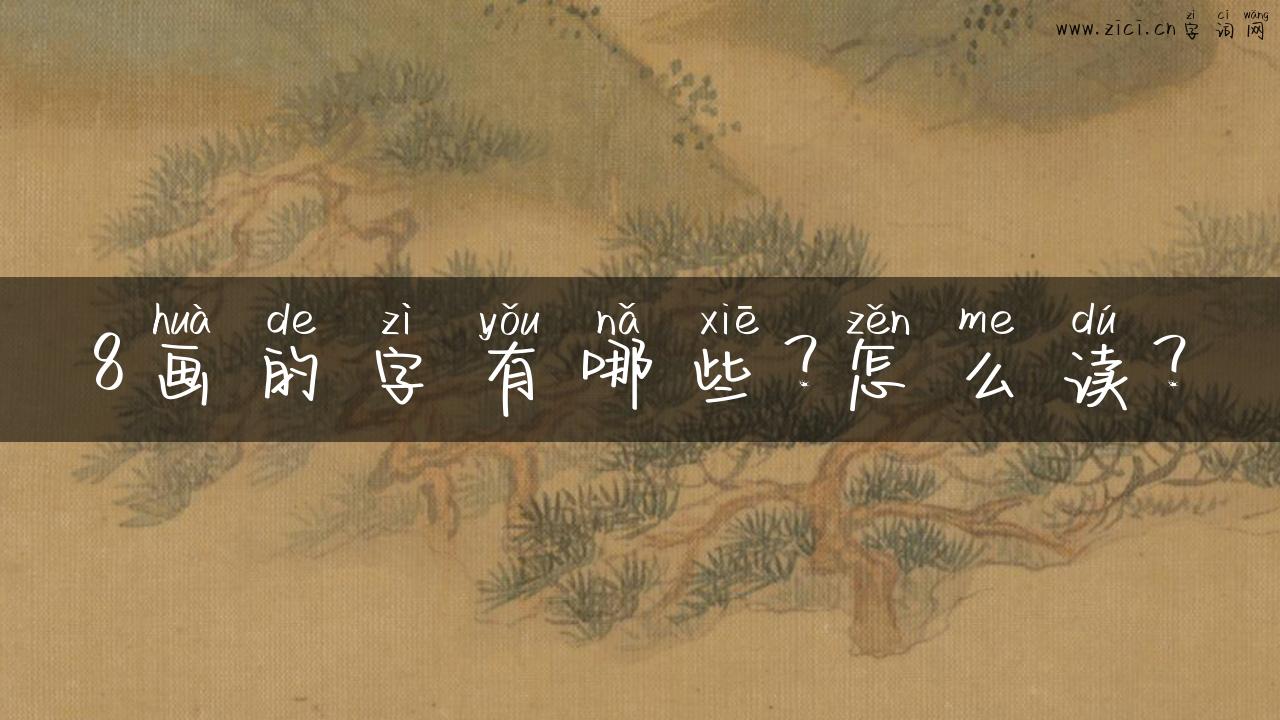 zì cí wǎng
www.zici.cn字词网
huà de zì yǒu nǎ xiē zěn me dú
8画的字有哪些?怎么读?